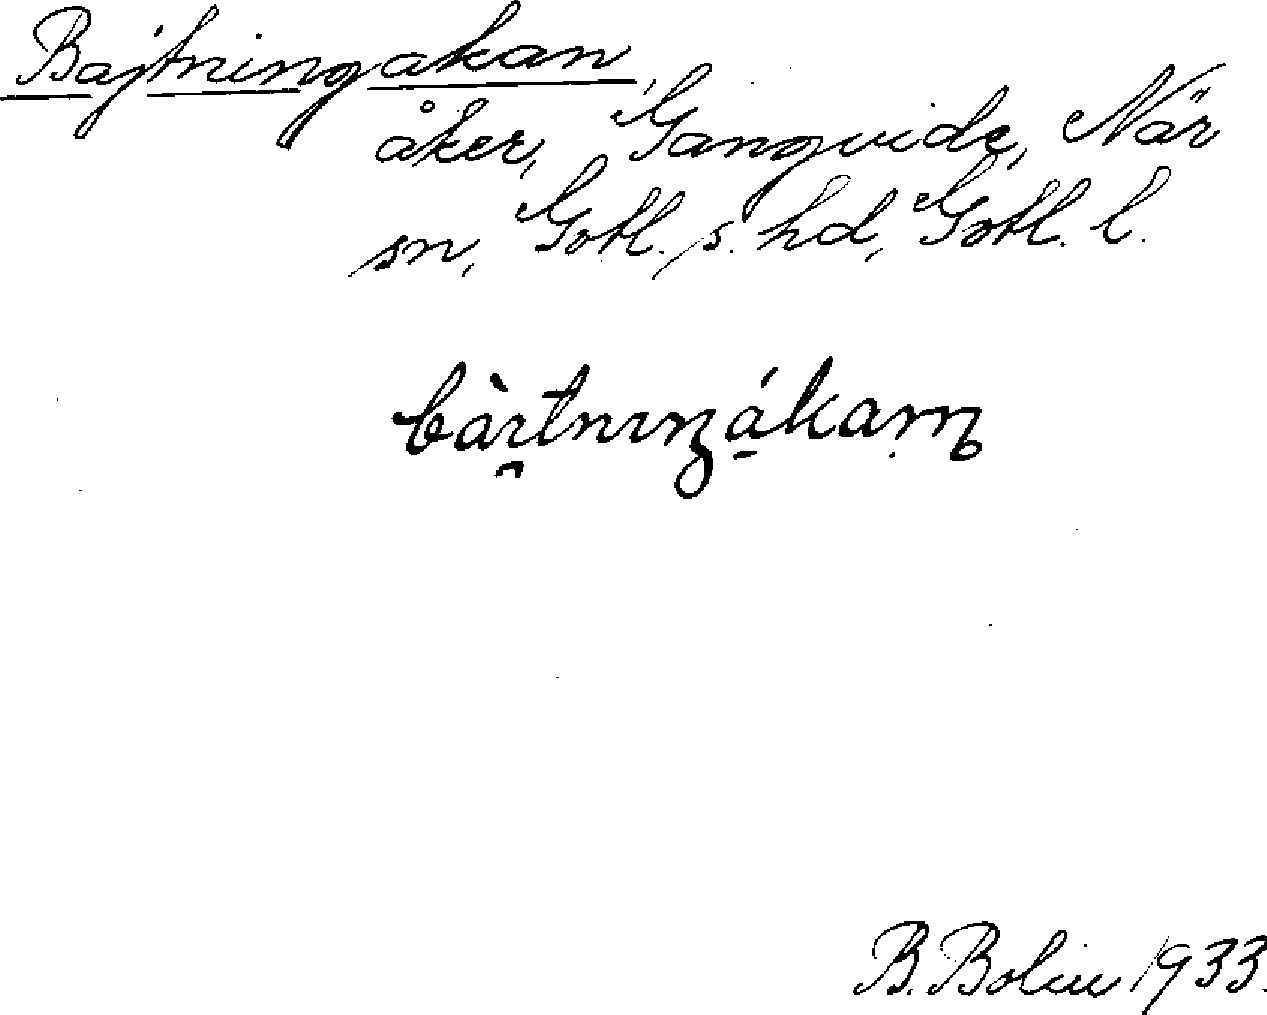 Bajtningakan
åker, Gangvide, När
sn, Gotl. s. hd, Gotl. l.
bàı̯tnıŋákaṃ
B. Bolin 1933.